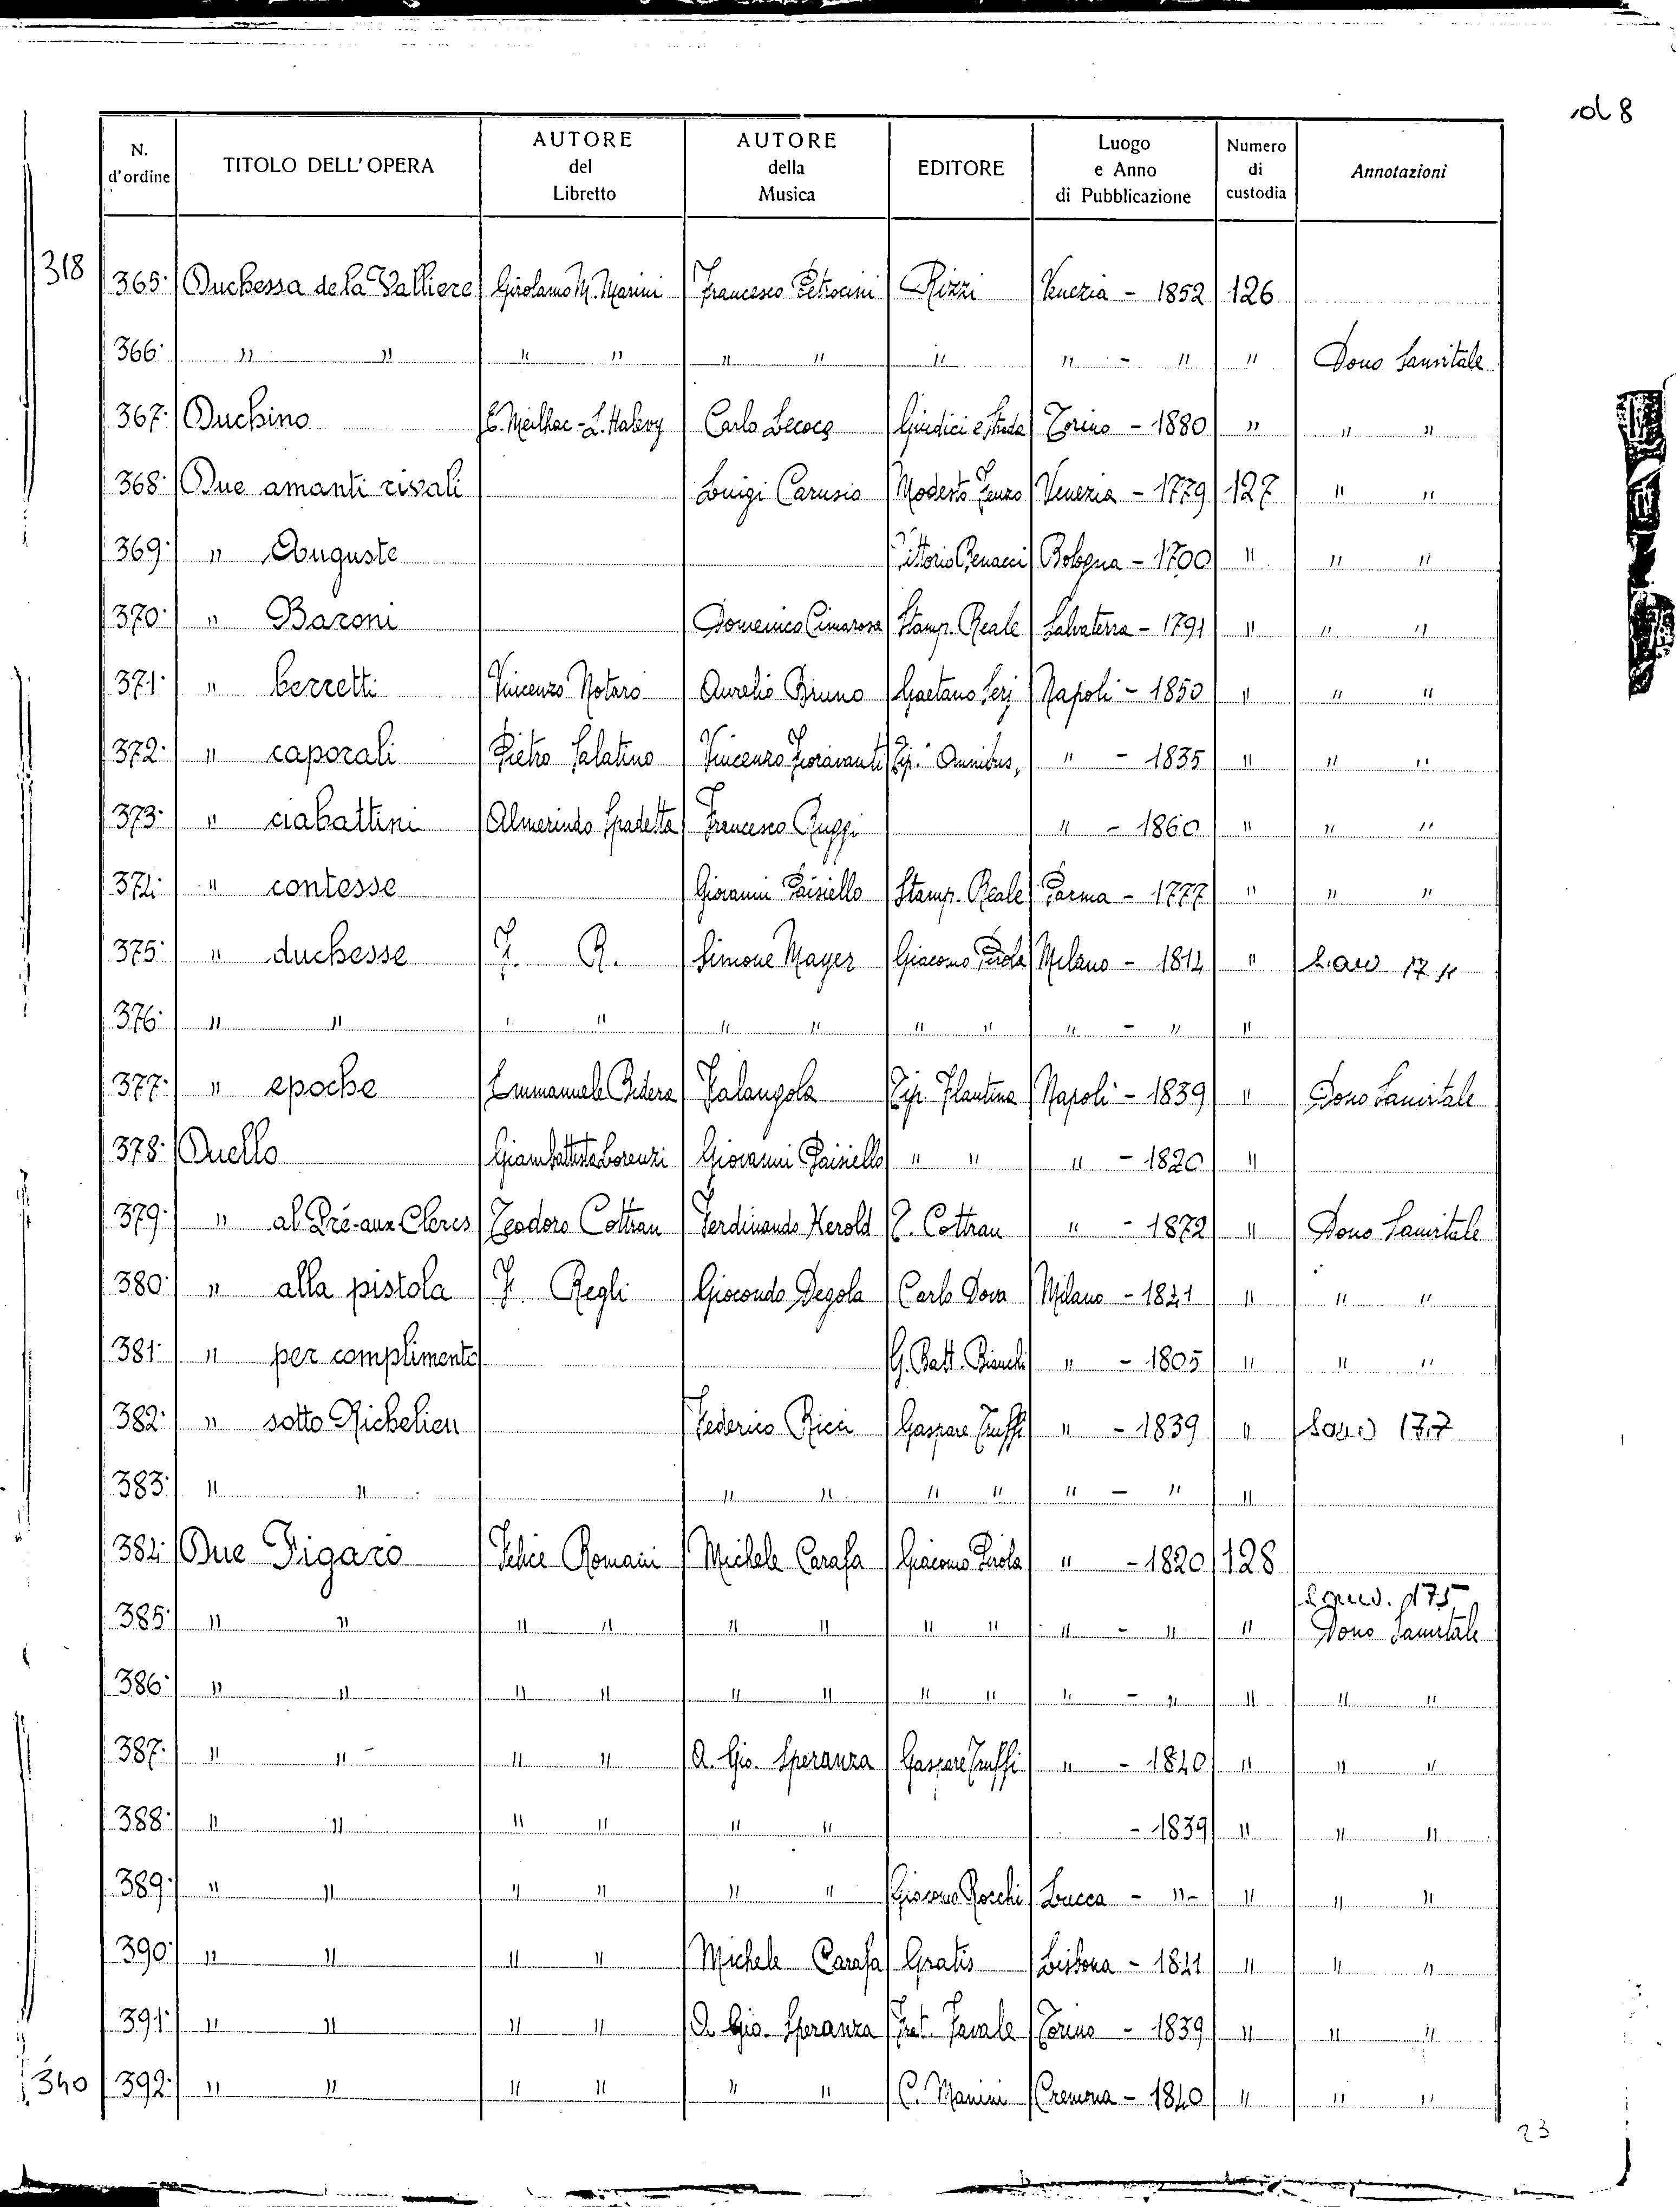 ol 8
N. d'ordine | TITOLO DELL'OPERA | AUTORE del Libretto | AUTORE della Musica | EDITORE | Luogo e Anno di Pubblicazione | Numero di custodia | Annotazioni
318
365· | Duchessa de la Valliere | Girolamo M. Marini | Francesco Petrocini | Rizzi | Venezia - 1852 | 126
366· | " " | " " | " " | " | " - " | " | Dono Sanvitale
367· | Duchino | E. Meilhac - L. Halevy | Carlo Lecocq | Giudici e Strada | Torino - 1880 | " | " "
368· | Due amanti rivali | | Luigi Carusio | Modesto Fenzo | Venezia - 1779 | 127 | " "
369· | " Auguste | | | Vittorio Benacci | Bologna - 1700 | " | " "
370· | " Baroni | | Domenico Cimarosa | Stamp. Reale | Salvaterra - 1791 | " | " "
371· | " berretti | Vincenzo Notaro | Aurelio Bruno | Gaetano Serj | Napoli - 1850 | " | " "
372· | " caporali | Pietro Salatino | Vincenzo Fioravanti | Tip. " Omnibus, | " - 1835 | " | " "
373· | " ciabattini | Almerindo Spadetta | Francesco Ruggi | | " - 1860 | " | " "
374· | " contesse | | Giovanni Paisiello | Stamp. Reale | Parma - 1777 | " | " "
375· | " duchesse | F. R. | Simone Mayer | Giacomo Pirola | Milano - 1814 | "
376· | " " | " " | " " | " " | " - " | "
377· | " epoche | Emmanuele Bidera | Falangola | Tip. Plautina | Napoli - 1839 | " | Dono Sanvitale
378· | Duello | Giambattista Lorenzi | Giovanni Paisiello | " " | " - 1820 | "
379· | " al Pré-aux Clercs | Teodoro Cottrau | Ferdinando Herold | T. Cottrau | " - 1872 | " | Dono Sanvitale
380· | " alla pistola | F. Regli | Giocondo Degola | Carlo Dova | Milano - 1841 | " | " "
381· | " per complimento | | | G. Batt. Bianchi | " - 1805 | " | " "
382· | " sotto Richelieu | | Federico Ricci | Gaspare Truffi | " - 1839 | " | 177
383· | " " | | " " | " " | " - " | "
384· | Due Figaro | Felice Romani | Michele Carafa | Giacomo Pirola | " - 1820 | 128
175
385· | " " | " " | " " | " " | " - " | " | Dono Sanvitale
386· | " " | " " | " " | " " | " - " | " | " "
387· | " " | " " | A. Gio. Speranza | Gaspare Truffi | " - 1840 | " | " "
388· | " " | " " | " " | | - 1839 | " | " "
389· | " " | " " | " " | Giacomo Rocchi | Lucca - " - | " | " "
390· | " " | " " | Michele Carafa | Gratis | Lisbona - 1841 | " | " "
391· | " " | " " | A. Gio. Speranza | Frat. Favale | Torino - 1839 | " | " "
340
392· | " " | " " | " " | C. Manini | Cremona - 1840 | " | " "
23